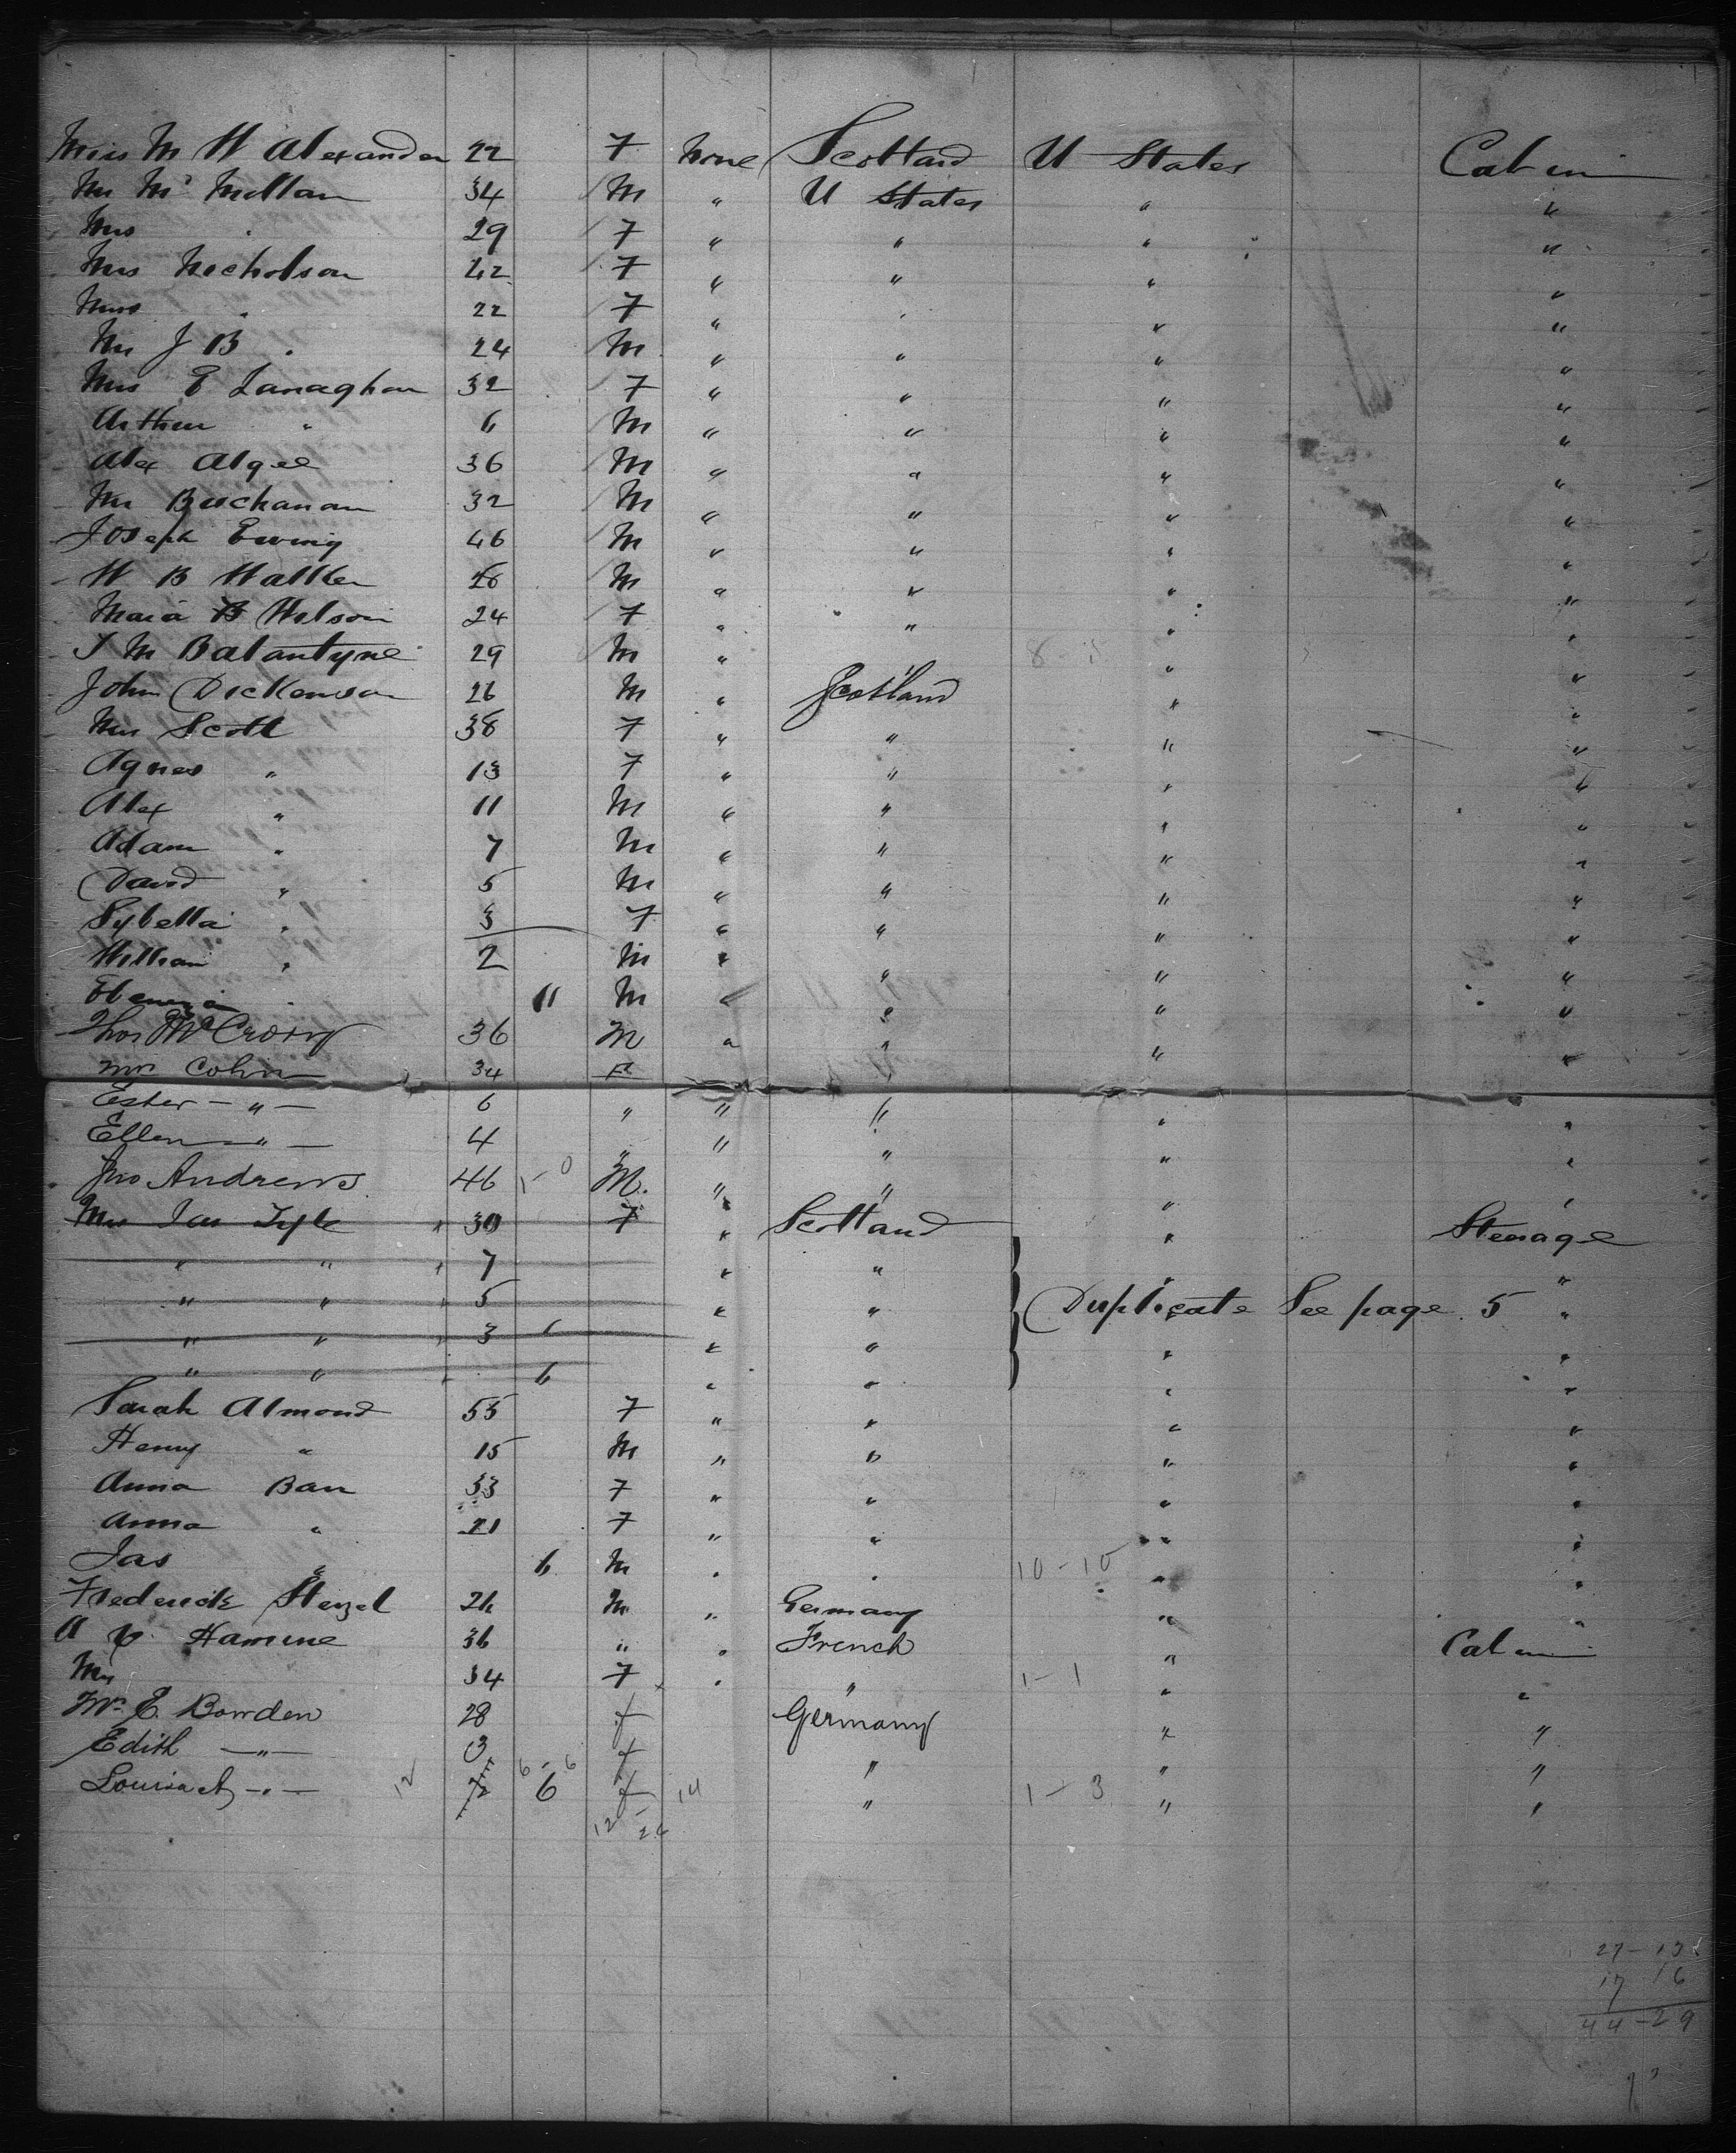 Miss M W Alexander 22 F None Scotland U States Cabin
Mr Mc Millan 34 M " U States " "
Mrs " 29 F " " " "
Mrs Nicholson 42 F " " " "
Miss " 22 F " " " "
Mr J B " 24 M " " " "
Mrs E Lanaghan 32 F " " " "
Arthur " 6 M " " " "
Alex Algee 36 M " " " "
Mr Buchanan 32 M " " " "
Joseph Ewing 46 M " " " "
W B Walker 26 M " " " "
Maria B Wilson 24 F " " " "
J M Balantyne 29 M " " "
John Dickenson 26 M " Scotland " "
Mrs Scott 38 F " " " "
Agnes " 13 F " " " "
Alex " 11 M " " " "
Adam " 7 M " " " "
David " 5 M " " " "
Sybella " 3 F " " " "
William " 2 M " " " "
Ebenezer " 11 M " " " "
Thos McCrory 36 M " " " "
Mrs Colvin 34 F "
Ester - " - 6 " " " " "
Ellen - " - 4 " " " " "
Jno Andrews 46 M. " " " "
Mrs Jas 30 F " Scotland " Steerage
" " 7 " " " "
" " 5 " " Duplicate See page 5 "
" " 3 " " " "
" " 6 " " " "
Sarah Almond 55 F " " " "
Henry " 15 M " " " "
Anna Barr 33 F " " " "
Anna " 21 F " " " "
Jas " 6 M " " 10-10 " "
Frederick Stenzel 26 M " Germany " "
A V Hamine 36 " " French " Cabin
Mrs 34 F " " 1-1 " "
Mrs E. Bowden 28 f Germany " "
Edith - " - 3 f " " "
Louisa A - " - 12 6 f 14 " 1-3 " "
12 26
27-13
17 16
44-29